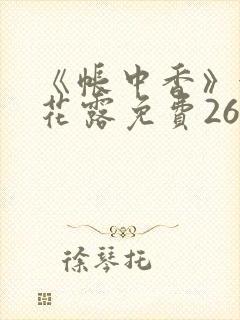 《帐中香》
花露免費26
徐琴托